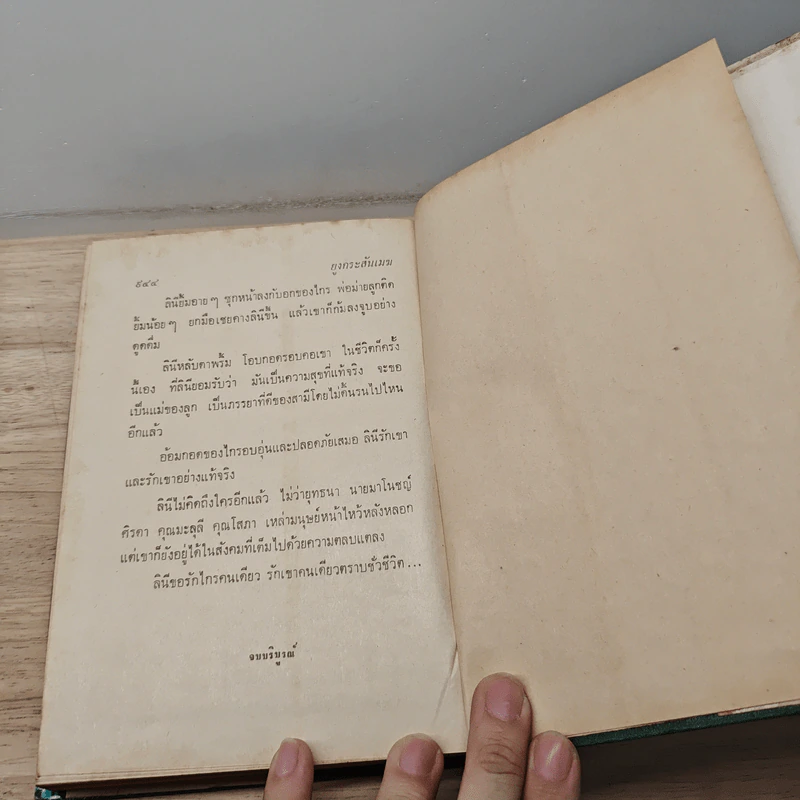 ๕๔๔
ยูงกระสันเมฆ
ลินียิ้มอาย ๆ ซุกหน้าลงกับอกของไกร พ่อม่ายลูกติด
ยิ้มน้อย ๆ ยกมือเชยคางลินีขึ้น แล้วเขาก็ก้มลงจูบอย่าง
ดูดดื่ม
ลินีหลับตาพริ้ม โอบกอดรอบคอเขา ในชีวิตก็ครั้ง
นี้เอง ที่ลินียอมรับว่า มันเป็นความสุขที่แท้จริง จะขอ
เป็นแม่ของลูก เป็นภรรยาที่ดีของสามีโดยไม่ดิ้นรนไปไหน
อีกแล้ว
อ้อมกอดของไกรอบอุ่นและปลอดภัยเสมอ ลินีรักเขา
และรักเขาอย่างแท้จริง
ลินีไม่คิดถึงใครอีกแล้ว ไม่ว่ายุทธนา นายมาโนชญ์
ศิรดา คุณมะลุลี คุณโสภา เหล่ามนุษย์หน้าไหว้หลังหลอก
แต่เขาก็ยังอยู่ได้ในสังคมที่เต็มไปด้วยความตลบแตลง
ลินีขอรักไกรคนเดียว รักเขาคนเดียวตราบชั่วชีวิต...
จบบริบูรณ์